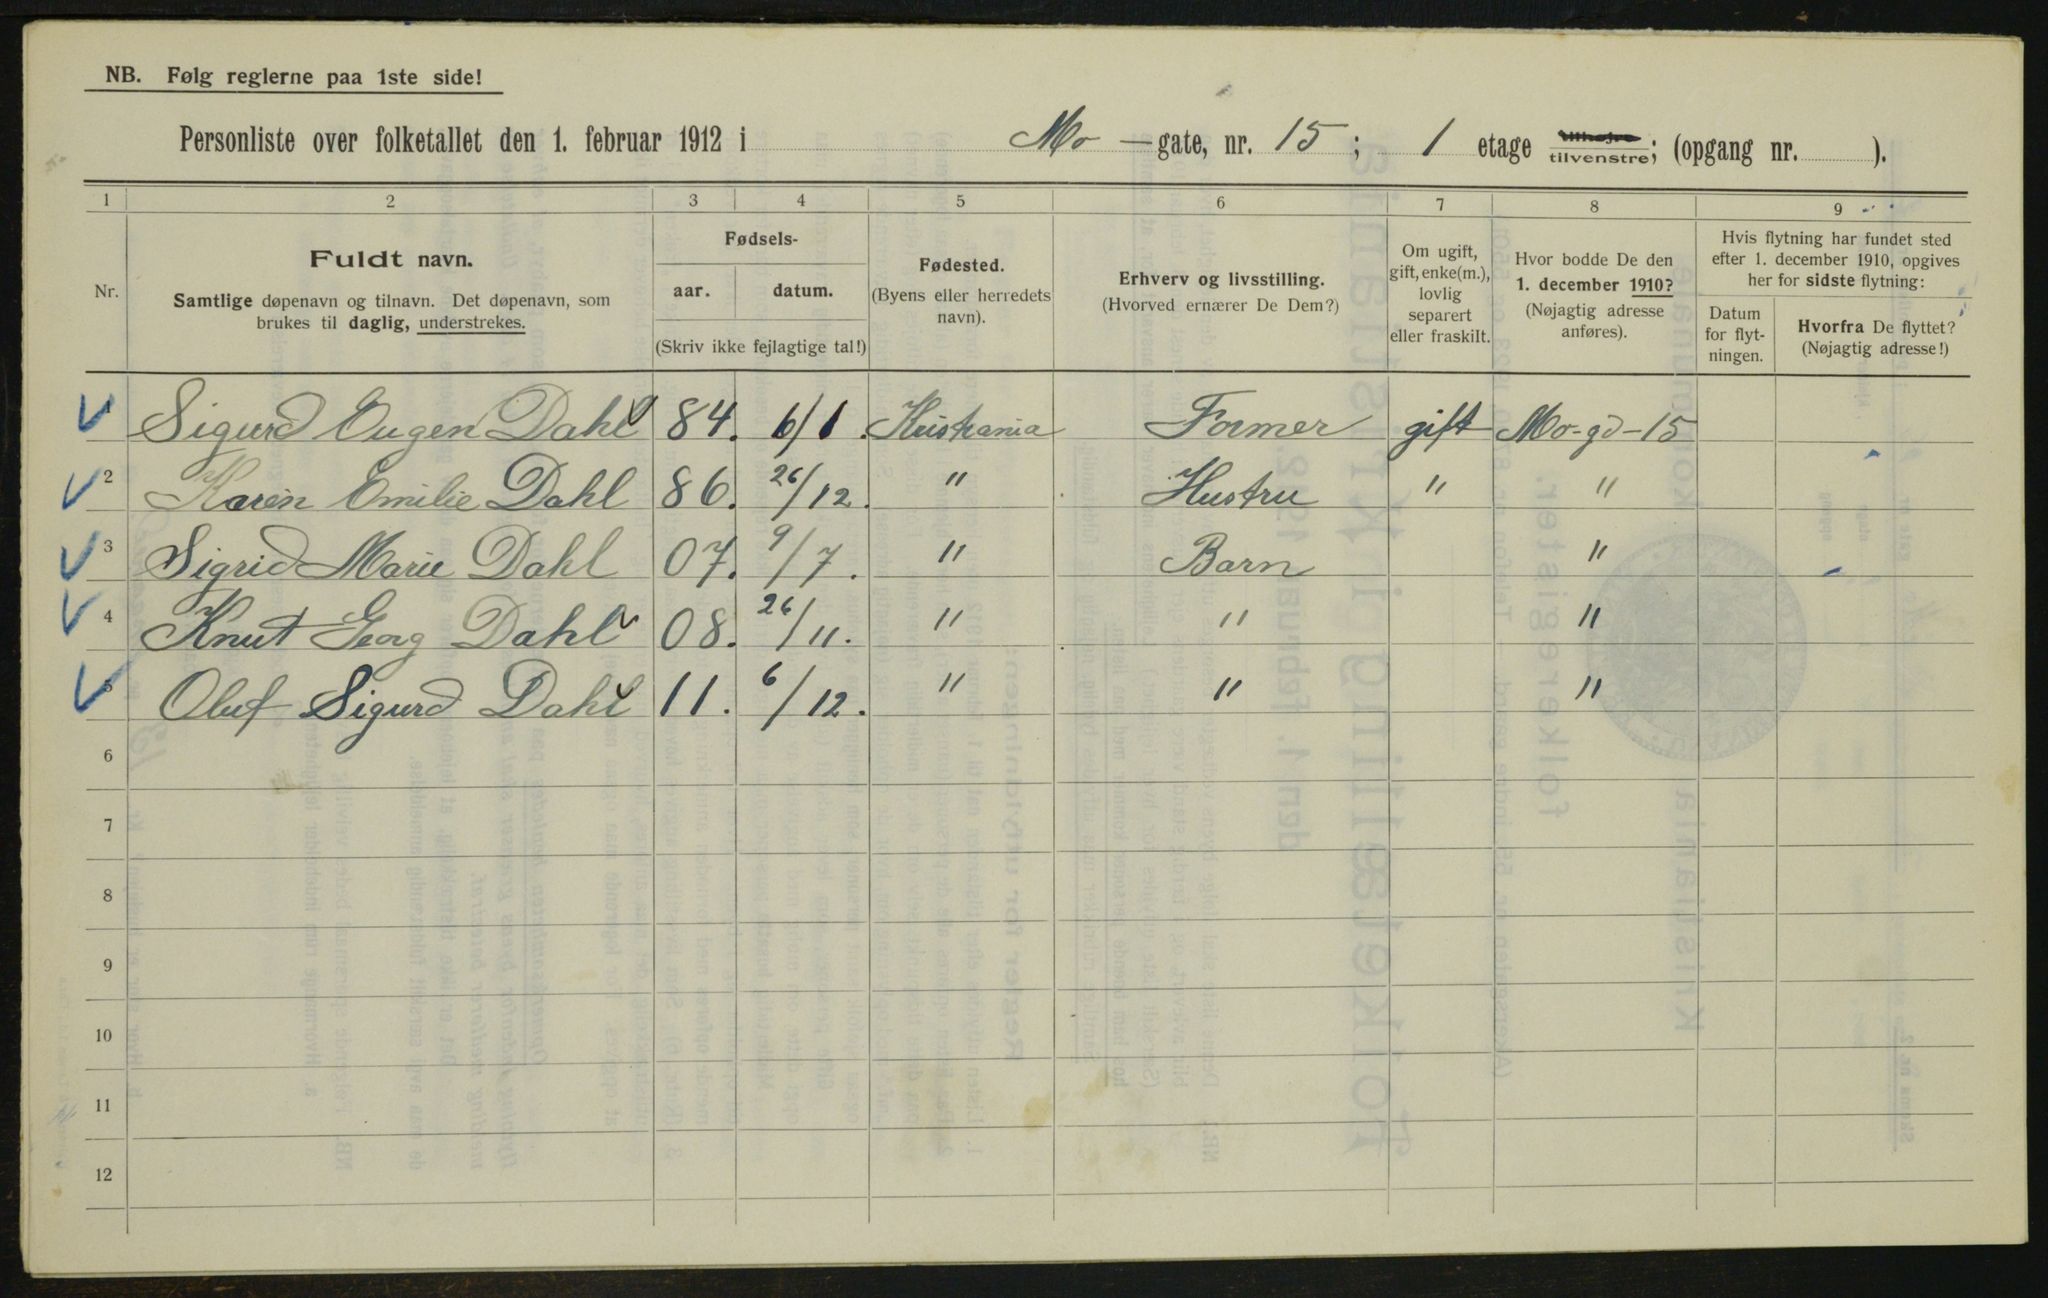 NB. Følg reglerne paa 1ste side!
Personliste over folketallet den 1. februar 1912 i Mo — gate, nr. 15; 1 etage tilhøjre tilvenstre; (opgang nr. ).
1 2 3 4 5 6 7 8 9
Nr.
Fuldt navn.
Samtlige døpenavn og tilnavn. Det døpenavn, som
brukes til daglig, understrekes.
Fødsels-
aar. datum.
(Skriv ikke fejlagtige tal!)
Fødested.
(Byens eller herredets
navn).
Erhverv og livsstilling.
(Hvorved ernærer De Dem?)
Om ugift,
gift, enke(m.),
lovlig
separert
eller fraskilt.
Hvor bodde De den
1. december 1910?
(Nøjagtig adresse
anføres).
Hvis flytning har fundet sted
efter 1. december 1910, opgives
her for sidste flytning:
Datum
for flyt-
ningen.
Hvorfra De flyttet?
(Nøjagtig adresse!)
Sigurd Eugen Dahl 84. 6/1. Kristiania Former gift Mo-gd-15
2 Karen Emilie Dahl 86. 26/12. " Hustru " "
3 Sigrid Marie Dahl 07. 9/7. " Barn "
4 Knut Georg Dahl 08. 26/11. " " "
5 Oluf Sigurd Dahl 11. 6/12. " " "
6
7
8
9
10
11
12